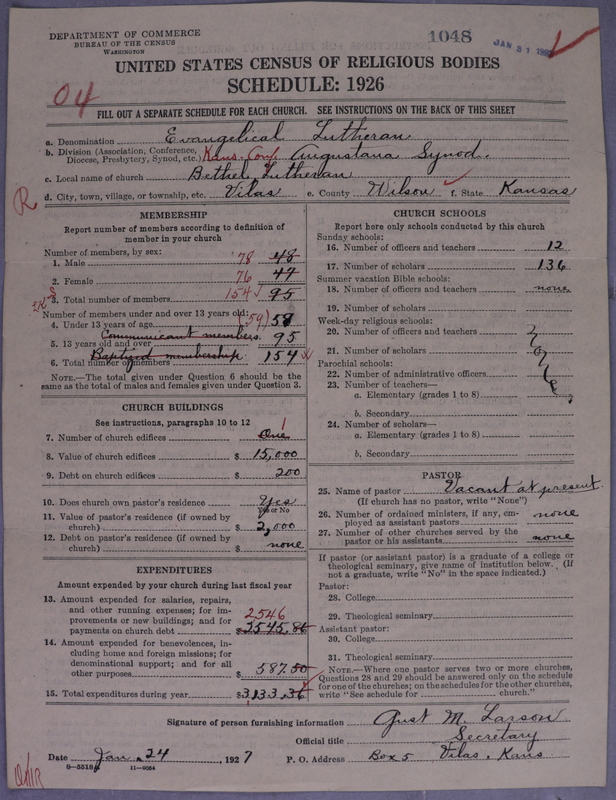 DEPARTMENT OF COMMERCE
BUREAU OF THE CENSUS
WASHINGTON
1048
JAN 31 1927
UNITED STATES CENSUS OF RELIGIOUS BODIES
SCHEDULE: 1926
04
FILL OUT A SEPARATE SCHEDULE FOR EACH CHURCH. SEE INSTRUCTIONS ON THE BACK OF THIS SHEET
a. Denomination Evangelical Lutheran
b. Division (Association, Conference, Diocese, Presbytery, Synod, etc.) Kans. Conf. Augustana Synod.
c. Local name of church Bethel Lutheran
d. City, town, village, or township, etc. Vilas e. County Wilson f. State Kansas
R
MEMBERSHIP
Report number of members according to definition of
member in your church
Number of members, by sex:
1. Male 78 48
2. Female 76 47
3. Total number of members 154 95
Number of members under and over 13 years old:
4. Under 13 years of age 59 58
Communicant members.
5. 13 years old and over 95
Baptized membership.
6. Total number of members 154
NOTE.—The total given under Question 6 should be
same as the total of males and females given under Question 3.
CHURCH BUILDINGS
See instructions, paragraphs 10 to 12
7. Number of church edifices One 1
8. Value of church edifices $ 15,000
9. Debt on church edifices $ 200
10. Does church own pastor's residence Yes
Yes or No
11. Value of pastor's residence (if owned by
church) $ 2,000
12. Debt on pastor's residence (if owned by
church) $ none
EXPENDITURES
Amount expended by your church during last fiscal year
13. Amount expended for salaries, repairs,
and other running expenses; for im-
provements or new buildings; and for
payments on church debt 2546 $2545.86
14. Amount expended for benevolences, in-
cluding home and foreign missions; for
denominational support; and for all
other purposes $ 587.50
15. Total expenditures during year $3,133.36
CHURCH SCHOOLS
Report here only schools conducted by this church
Sunday schools:
16. Number of officers and teachers 12
17. Number of scholars 136
Summer vacation Bible schools:
18. Number of officers and teachers none
19. Number of scholars
Week-day religious schools:
20. Number of officers and teachers
21. Number of scholars
Parochial schools:
22. Number of administrative officers
23. Number of teachers—
a. Elementary (grades 1 to 8)
b. Secondary
24. Number of scholars—
a. Elementary (grades 1 to 8)
b. Secondary
none
PASTOR
25. Name of pastor Vacant at present.
(If church has no pastor, write "None")
26. Number of ordained ministers, if any, em-
ployed as assistant pastors none
27. Number of other churches served by the
pastor or his assistants none
If pastor (or assistant pastor) is a graduate of a college or
theological seminary, give name of institution below. (If
not a graduate, write "No" in the space indicated.)
Pastor:
28. College
29. Theological seminary
Assistant pastor:
30. College
31. Theological seminary
NOTE.—Where one pastor serves two or more churches,
Questions 28 and 29 should be answered only on the schedule
for one of the churches; on the schedules for the other churches,
write "See schedule for church."
Signature of person furnishing information Gust M. Larson
Official title Secretary
Date Jan. 24 1927 P. O. Address Box 5 Vilas, Kans
11—9054